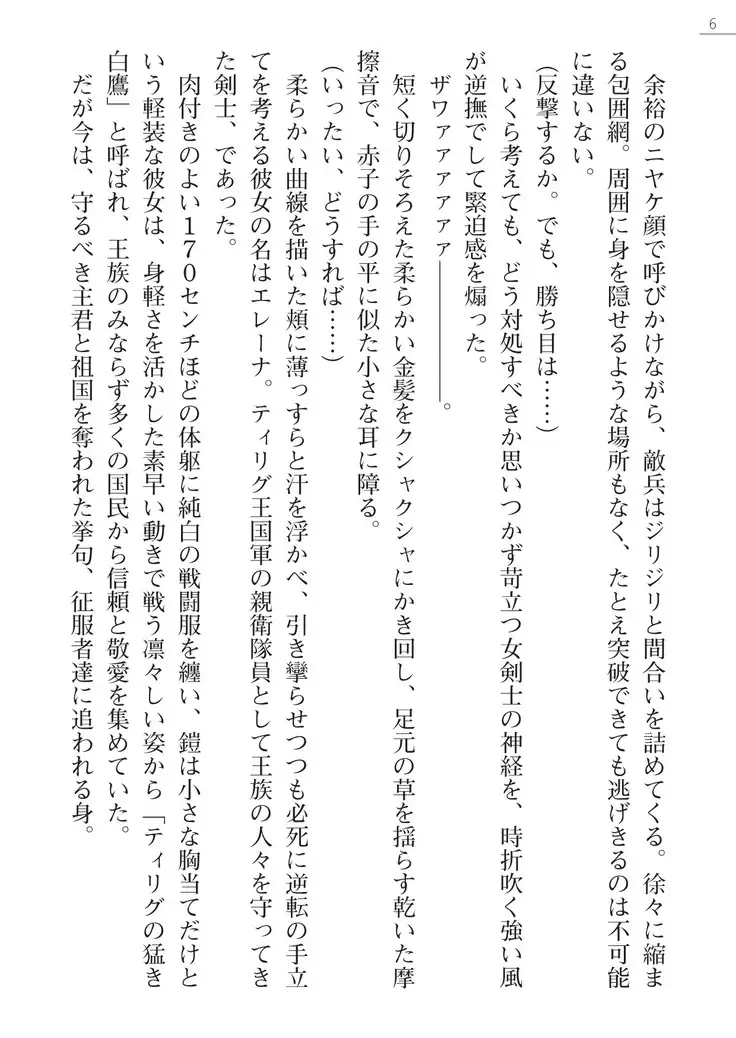 6
余裕のニヤケ顔で呼びかけながら、敵兵はジリジリと間合いを詰めてくる。徐々に縮ま
る包囲網。周囲に身を隠せるような場所もなく、たとえ突破できても逃げきるのは不可能
に違いない。
(反撃するか。でも、勝ち目は……)
いくら考えても、どう対処すべきか思いつかず苛立つ女剣士の神経を、時折吹く強い風
が逆撫でして緊迫感を煽った。
ザワァァァァァァ――――――。
短く切りそろえた柔らかい金髪をクシャクシャにかき回し、足元の草を揺らす乾いた摩
擦音で、赤子の手の平に似た小さな耳に障る。
(いったい、どうすれば……)
柔らかい曲線を描いた頬に薄っすらと汗を浮かべ、引き攣らせつつも必死に逆転の手立
てを考える彼女の名はエレーナ。ティリグ王国軍の親衛隊員として王族の人々を守ってき
た剣士、であった。
肉付きのよい170センチほどの体躯に純白の戦闘服を纏い、鎧は小さな胸当てだけと
いう軽装な彼女は、身軽さを活かした素早い動きで戦う凛々しい姿から「ティリグの猛き
白鷹」と呼ばれ、王族のみならず多くの国民から信頼と敬愛を集めていた。
だが今は、守るべき主君と祖国を奪われた挙句、征服者達に追われる身。